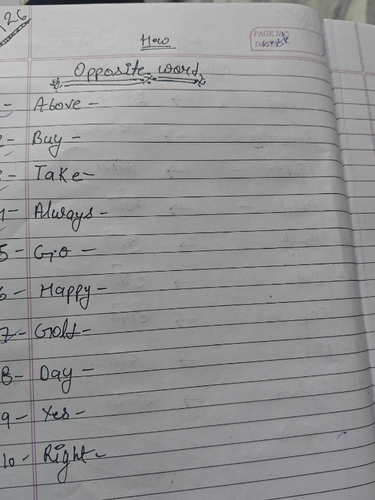 26
How
PAGE NO.
DATE
Opposite word
1- Above -
2- Buy -
3- Take -
4- Always -
5- Go -
6- Happy -
7- Gold -
8- Day -
9- Yes -
10- Right -